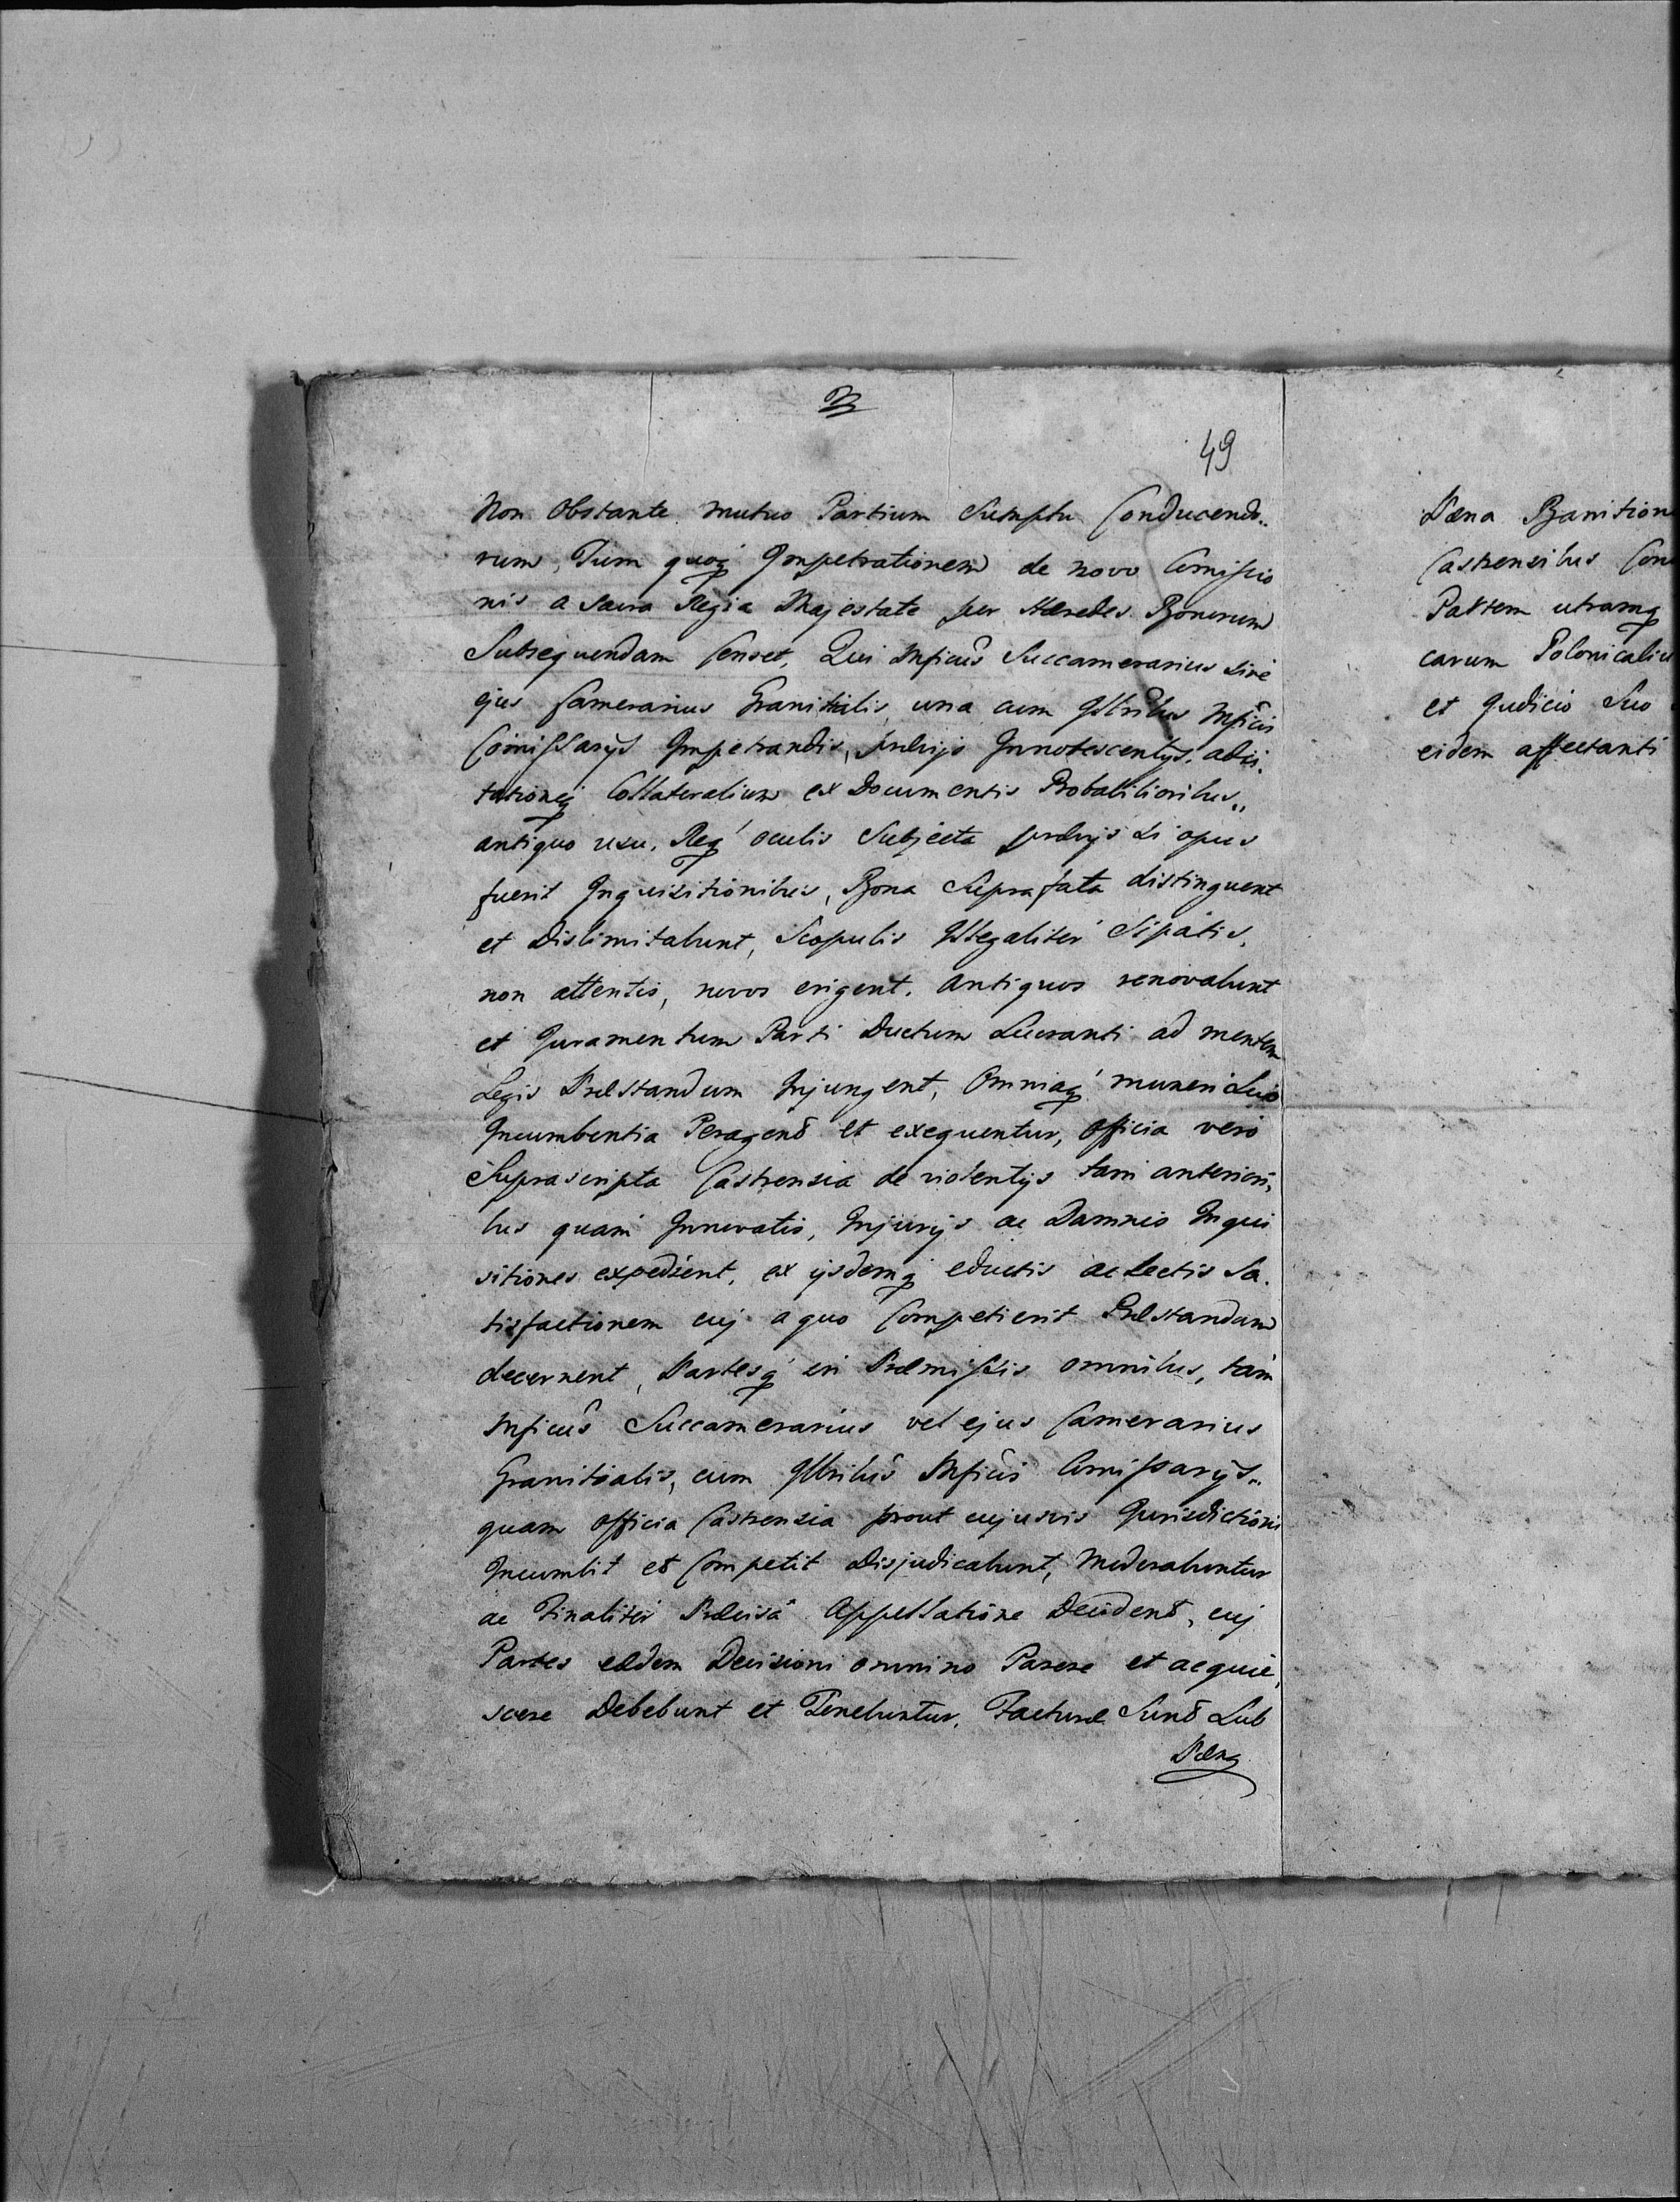 49
Non Obstante mutuo Partium Sumptu Conducendo„
rum, Tum quoq Impetrationem de novo Comissio
nis a Sacra Regia Majestate per Hæredes Bonorum
Subsequendam Censet, Qui Mficus Succamerarius sive
ejus Camerarius Granitialis, una cum Illribus Mficis
Comissarijs Impetrandis, prævijs Innotescentijs, adci„
tationeq Collateralium ex Documentis Probabilioribus„
antiquo usu, Req oculis Subjecta prævijs si opus
fuerit Inquisitionibus, Bona Suprafata distinguent
et Dislimitabunt, Scopulis Illegaliter Sipatis,
non attentis, novos erigent, antiquos renovabunt
et Juramentum Parti Ductum Lucranti ad mentem
Legis Præstandum Injungent, Omniaq muneri Suo
Incumbentia Peragent et exequentur, Officia vero
Suprascripta Castrensia de violentijs tam anteriori„
bus quam Innovatis, Injurijs ac Damnis Inqui
sitiones expedient, ex ijsdemq eductis ac Lectis Sa„
tisfactionem cuj a quo Competierit Præstandam
decernent, Partesq in Præmissis omnibus, tam
Mficus Succamerarius vel ejus Camerarius
Granitialis, cum Illribus Mficis Comissarijs„
quam Officia Castrensia prout cujusvis Jurisdictioni
Incumbit et Competit Disjudicabunt, Moderabuntur
ac Finaliter Præcisa Appellatione Decident, cuj
Partes eædem Decisioni omnino Parere et acquie„
scere Debebunt et Tenebuntur, Facturæ Sunt Sub
Pæna
Pæna Banition
Castrensibus Con
Partem utramq
carum Polonicaliu
et Judicio Suo
eidem affectanti